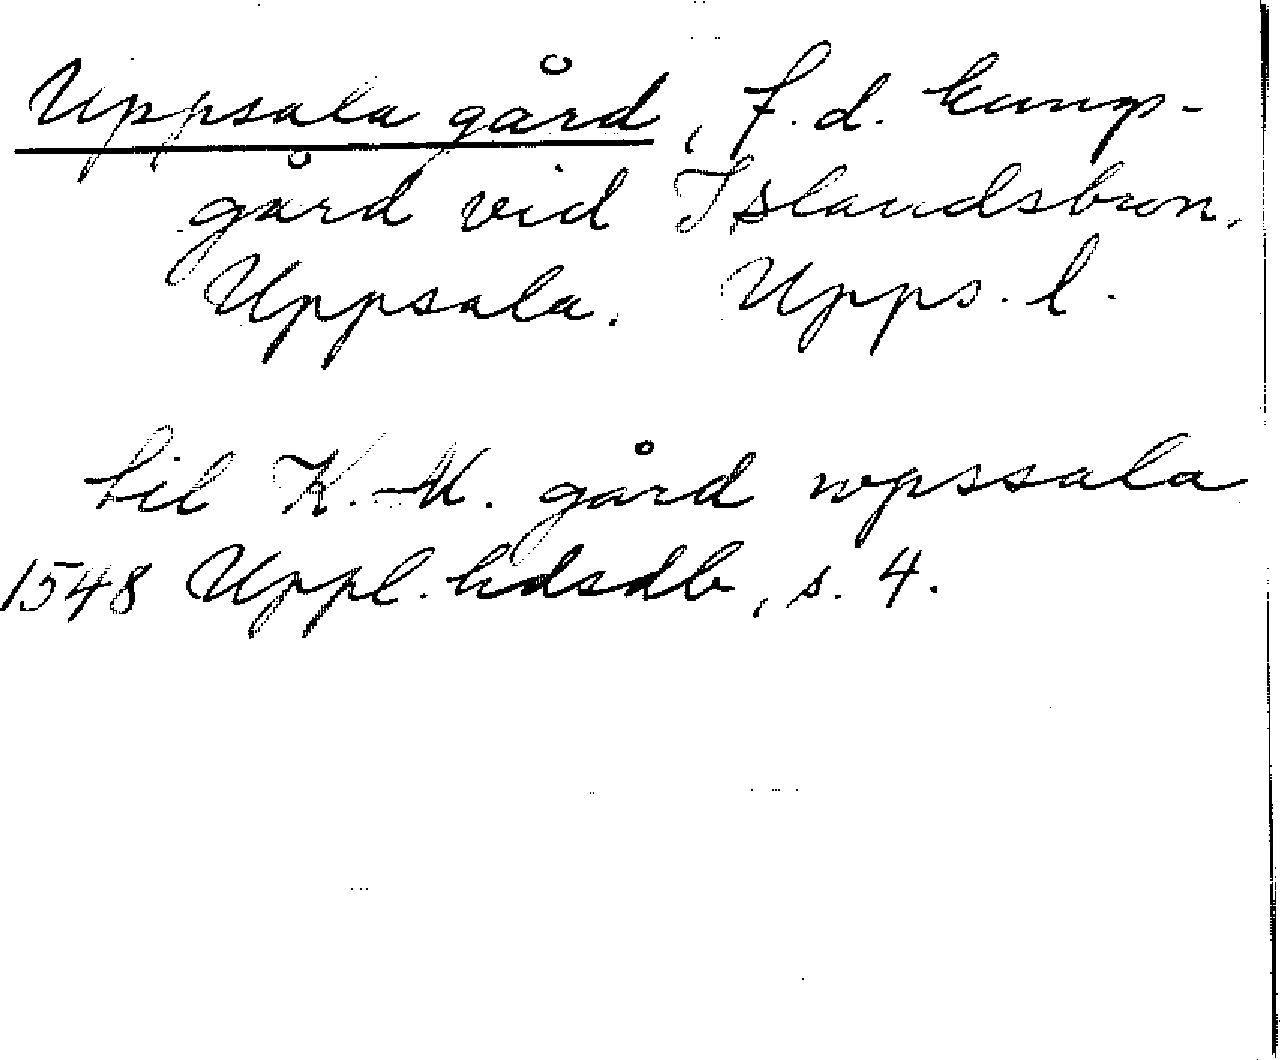 Uppsala gård, f.d. kungs-
gård vid Islandsbron,
Uppsala. Upps. l.
till K. M. gård wpssala
1548 Uppl. hdsdb, s. 4.